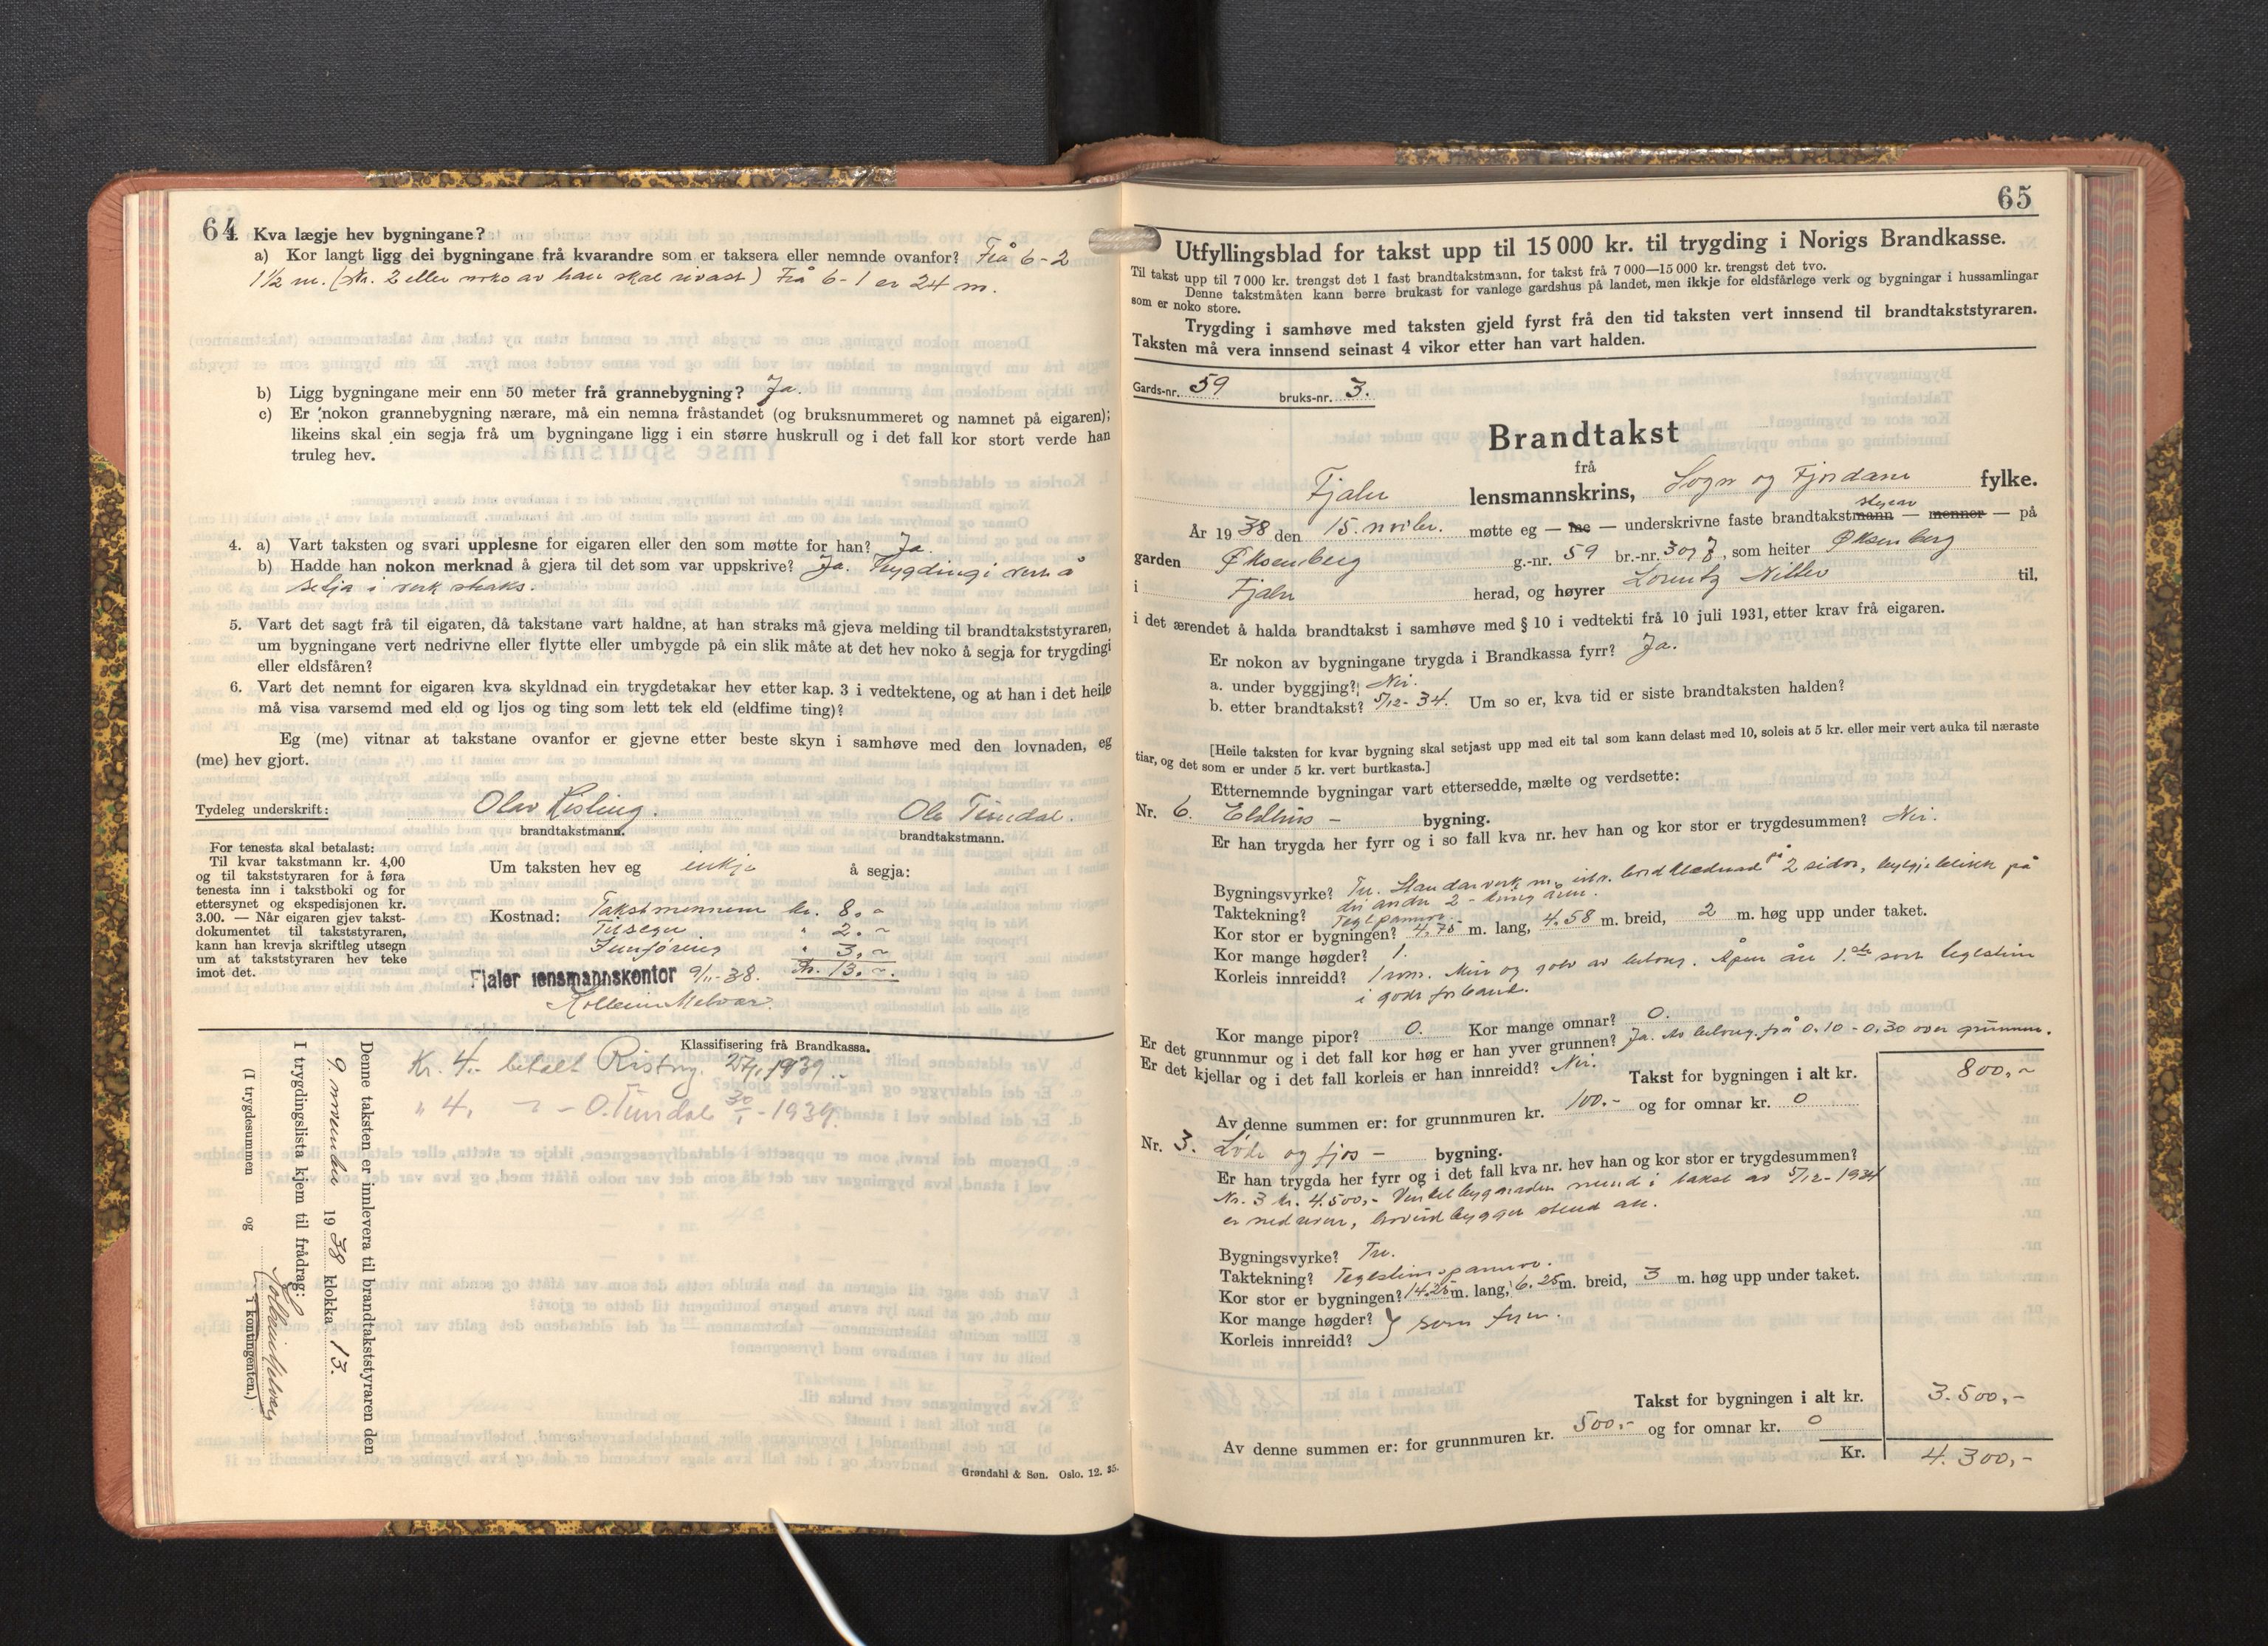 64
Kva lægje hev bygningane?
a) Kor langt ligg dei bygningane frå kvarandre som er taksera eller nemnde ovanfor? Frå 6-2
1½ m. (Nr. 2 eller noko av han skal rivast) Frå 6-1 er 24 m.
b) Ligg bygningane meir enn 50 meter frå grannebygning? Ja.
c) Er nokon grannebygning nærare, må ein nemna fråstandet (og bruksnummeret og namnet på eigaren);
likeins skal ein segja frå um bygningane ligg i ein større huskrull og i det fall kor stort verde han
truleg hev.
4. a) Vart taksten og svari upplesne for eigaren eller den som møtte for han? Ja.
b) Hadde han nokon merknad å gjera til det som var uppskrive? Ja. Trygdingi vert å
setja i verk straks.
5. Vart det sagt frå til eigaren, då takstane vart haldne, at han straks må gjeva melding til brandtakststyraren,
um bygningane vert nedrivne eller flytte eller umbygde på ein slik måte at det hev noko å segja for trygdingi
eller eldsfåren?
6. Vart det nemnt for eigaren kva skyldnad ein trygdetakar hev etter kap. 3 i vedtektene, og at han i det heile
må visa varsemd med eld og ljos og ting som lett tek eld (eldfime ting)?
Eg (me) vitnar at takstane ovanfor er gjevne etter beste skyn i samhøve med den lovnaden, eg
(me) hev gjort.
Tydeleg underskrift: Olav Risting. Ole Timdal.
brandtakstmann. brandtakstmann.
For tenesta skal betalast:
Til kvar takstmann kr. 4,00
og til takststyraren for å føra
tenesta inn i takstboki og for
ettersynet og ekspedisjonen kr.
3.00. — Når eigaren gjev takst-
dokumentet til takststyraren,
kann han krevja skriftleg utsegn
um at takststyraren hev teke
imot det.
Um taksten hev eg inkje å segja:
Kostnad: Takstmennene kr. 8,-
Tilsegn " 2.-
Innføring " 3,-
Kr. 13,-
Fjaler lensmannskontor 9/11-38.
Klassifisering frå Brandkassa.
Kr. 4.- betalt Risting. 27/1 1939.
" 4, - O. Timdal 30/1-1939.
Denne taksten er innlevera til brandtakststyraren den
9. november 1938 klokka 13.
I trygdingslista kjem til frådrag:
(I trygdesummen og I kontingenten.)
Grøndahl & Søn. Oslo. 12. 35.
65
Utfyllingsblad for takst upp til 15 000 kr. til trygding i Norigs Brandkasse.
Til takst upp til 7 000 kr. trengst det 1 fast brandtakstmann, for takst frå 7 000—15 000 kr. trengst det tvo.
Denne takstmåten kann berre brukast for vanlege gardshus på landet, men ikkje for eldsfårlege verk og bygningar i hussamlingar
som er noko store.
Trygding i samhøve med taksten gjeld fyrst frå den tid taksten vert innsend til brandtakststyraren.
Taksten må vera innsend seinast 4 vikor etter han vart halden.
Gards-nr. 59 bruks-nr. 3.
Brandtakst
frå
Fjaler lensmannskrins, Sogn og Fjordane fylke.
År 1938 den 15. novbr. møtte eg — me — underskrivne faste brandtakstmann styrar — menner — på
garden Øksenberg g.-nr. 59 br.-nr. 3 og 7, som heiter Øksenberg
i Fjaler herad, og høyrer Lorentz til.
i det ærendet å halda brandtakst i samhøve med § 10 i vedtekti frå 10 juli 1931, etter krav frå eigaren.
Er nokon av bygningane trygda i Brandkassa fyrr? Ja.
a. under byggjing? Nei.
b. etter brandtakst? 5/12-34. Um so er, kva tid er siste brandtaksten halden?
[Heile taksten for kvar bygning skal setjast upp med eit tal som kann delast med 10, soleis at 5 kr. eller meir vert auka til næraste
tiar, og det som er under 5 kr. vert burtkasta.]
Etternemnde bygningar vart ettersedde, mælte og verdsette:
Nr. 6. Eldhus - bygning.
Er han trygda her fyrr og i so fall kva nr. hev han og kor stor er trygdesummen? Nei.
Bygningsvyrke? Tre. Standarverk m. utv. bordklædnad på 2 sidor, bylgjeblikk på
dei andre 2
Taktekning? Teglpanner.
Kor stor er bygningen? 4,75 m. lang, 4,58 m. breid, 2 m. høg upp under taket.
Kor mange høgder? 1.
Korleis innreidd? 1 rom. Mur og golv av betong. Åpen åre 1.ste sort teglstein
i godt forband.
Kor mange pipor? 0. Kor mange omnar? 0.
Er det grunnmur og i det fall kor høg er han yver grunnen? Ja. Av betong, frå 0.10 - 0.30 over grunnen.
Er det kjellar og i det fall korleis er han innreidd? Nei.
Takst for bygningen i alt kr. 800,-
Av denne summen er: for grunnmuren kr. 100.- og for omnar kr. 0
Nr. 3. Løde og fjos - bygning.
Er han trygda her fyrr og i det fall kva nr. hev han og kor stor er trygdesummen?
Nr. 3 kr. 4.500,- Vinkelbygnaden nemnd i takst av 5/12-1934
er nedriven, hovudbygget stend att.
Bygningsvyrke? Tre.
Taktekning? Teglsteinspanner.
Kor stor er bygningen? 14.25 m. lang, 6.25 m. breid, 3 m. høg upp under taket.
Kor mange høgder? } som fyrr.
Korleis innreidd?
Takst for bygningen i alt kr. 3.500,-
Av denne summen er: for grunnmuren kr. 500.- og for omnar kr. 0
Kr. 4.300,-